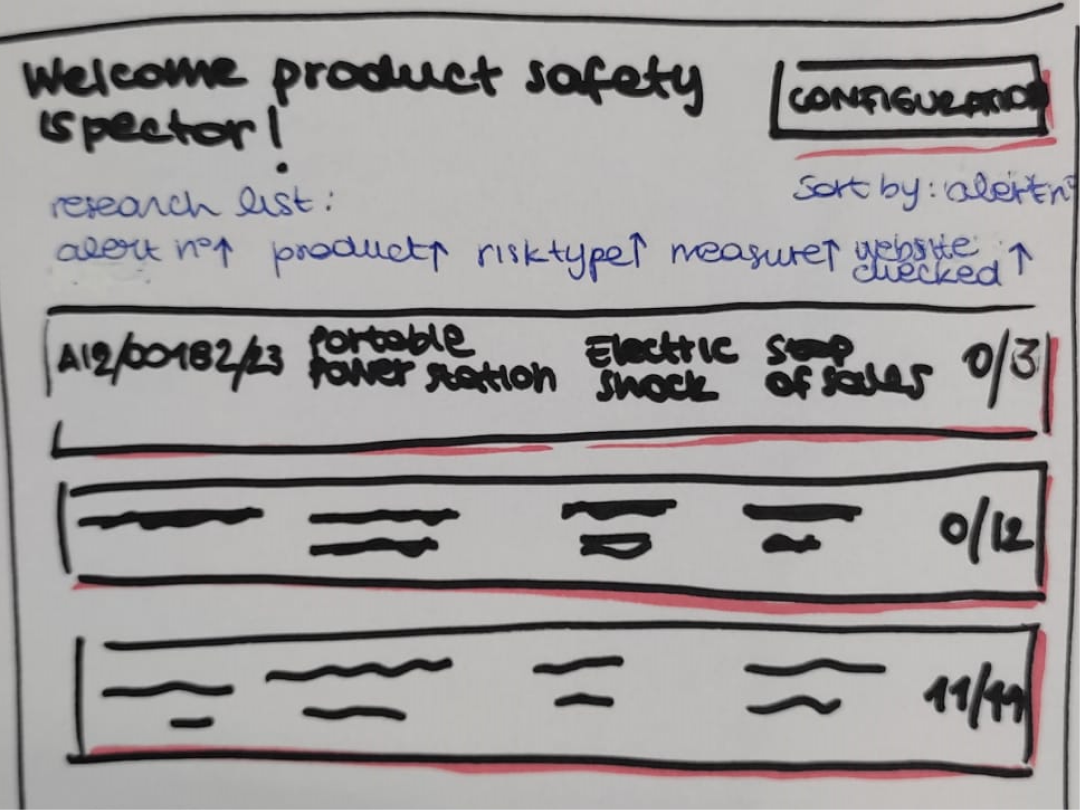 Welcome product safety
ispector!
CONFIGURATION
research list:
sort by: alert n°
alert n°↑ product↑ risk type↑ measure↑ website checked ↑
A12/00182/23 Portable Power station Electric shock Stop of sales 0/3
0/12
11/11